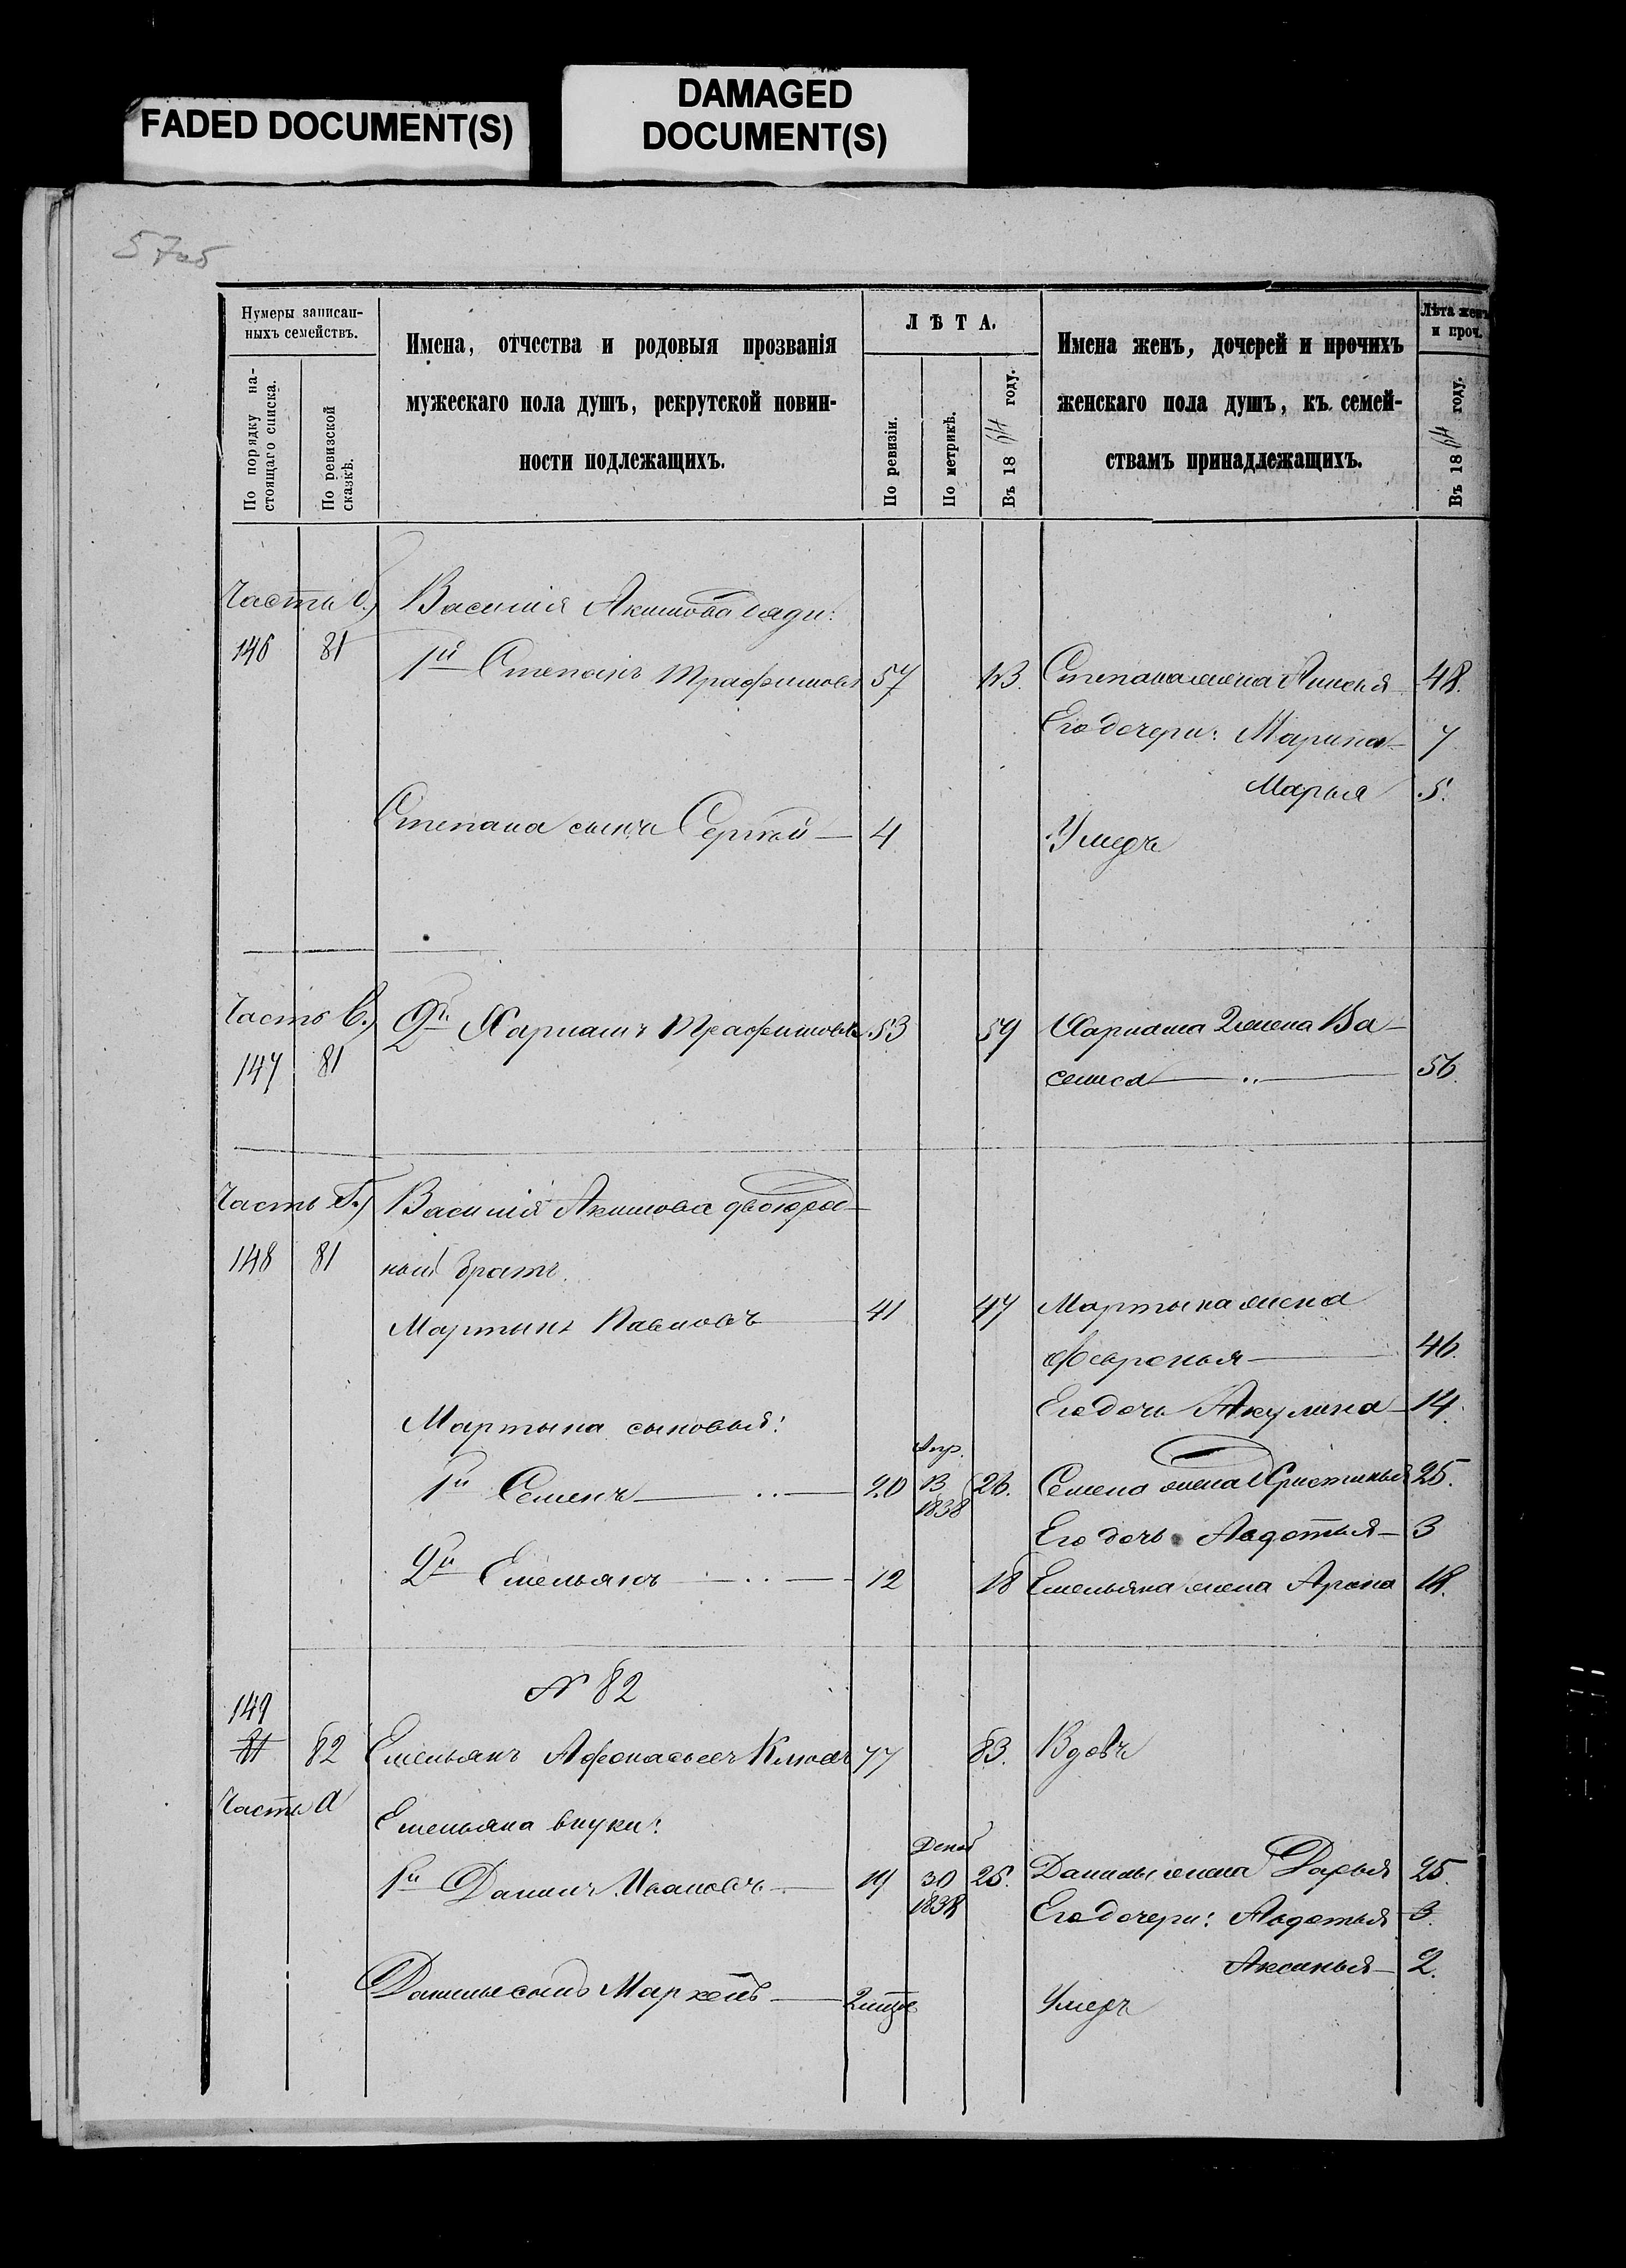 FADED DOCUMENT(S)
DAMAGED
DOCUMENT(S)
57об
Нумеры записан-
ныхъ семействъ.
По порядку на-
стоящаго списка.
По ревизской
сказкѣ.
Имена, отчества и родовыя прозванія
мужескаго пола душъ, рекрутской повин-
ности подлежащихъ.
ЛѢТА.
По ревизіи.
По метрикѣ.
Въ 1864 году.
Имена женъ, дочерей и прочихъ
женскаго пола душъ, къ семей-
ствамъ принадлежащихъ.
Лѣта женъ
и проч.
Въ 1864 году.
Часть Василія Акимова дяди:
146 81 1й Степанъ Трафимовъ 57 63. Степана жена Аксинья 48.
Его дочери: Марина 7
Марья 5.
Степана сынъ Сергѣй 4 Умеръ
Часть в.) 2й Харлампъ Трафимовъ 53 59 Харлампа 2 жена Ва-
147 81 силиса 56.
Часть Василія Акимова двоюрод-
148 81 ный братъ.
Мартынъ Павловъ 41 47 Мартына жена
Февронья 46.
Его дочь Акулина 14.
Мартына сыновья:
1й Семенъ 20 Апр. 13 1838 26. Семена жена Христинья 25.
Его дочь Авдотья 3
2й Емельянъ 12 18 Емельяна жена Арина 18.
N 82
149
81 82 Емельянъ Афонасьевъ 77 83. Вдовъ
Часть а
Емельяна внуки:
1й Данилъ Ивановъ 19 Декаб 30 1838 25. Данилы жена Дарья 25.
Его дочери: Авдотья 3.
Аксинья 2.
Данилы сынъ Маркелъ Умеръ